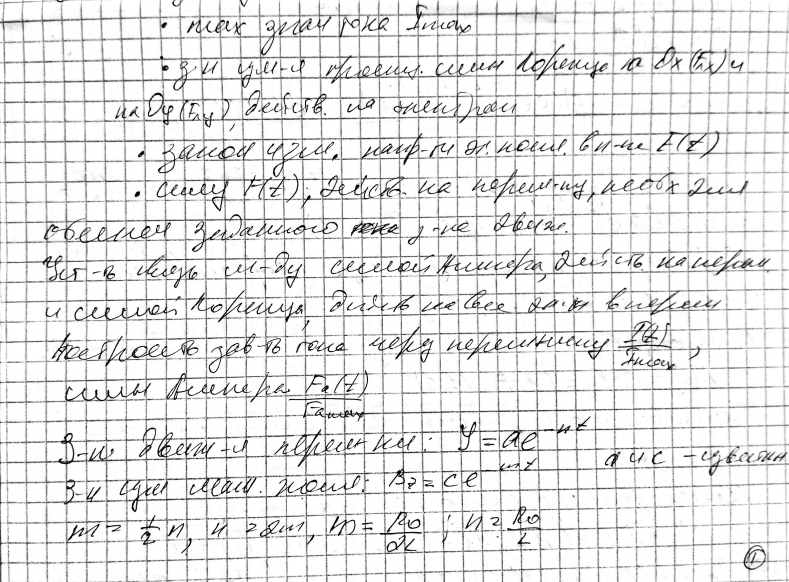 • max знач тока Imax
• з-н изм-я проекц. силы Лоренца на Ox (Fлx) и
на Oy (Fлy), действ. на электрон
• закон изм. напр-ти эл. поля в п-ке E(t)
• силу F(t), действ. на перем-ку, необх для
обеспеч заданного з-на движ.
Уст-ть связь м-ду силой Ампера, действ на перем.
и силой Лоренца, действ на все эл-ны в перем
Построить зав-ть тока через перемычку I(t)/Imax,
силы Ампера Fa(t)/Famax
З-н движ-я перемычки: y = ae^-nt
З-н изм маг. поля: Bz = ce^-mt a и c - известн
m = 1/2 n, n = 2m, m = R0/2L ; n = R0/L
1